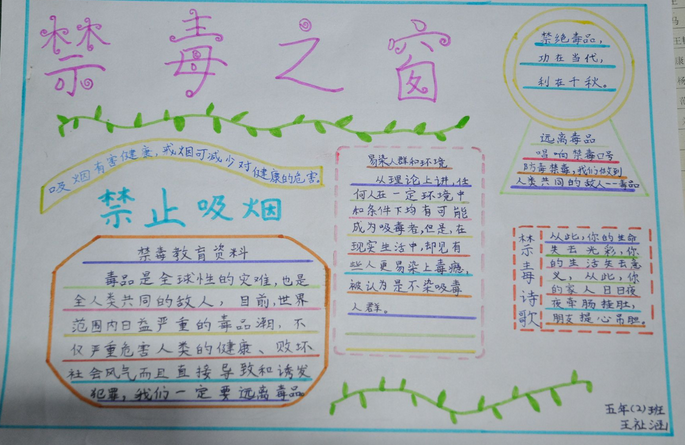 禁毒之窗
禁绝毒品,
功在当代,
利在千秋。
远离毒品
唱响禁毒口号
防毒禁毒,我们做到
人类共同的敌人—毒品
吸烟有害健康,减烟可减少对健康的危害
禁止吸烟
禁毒教育资料
毒品是全球性的灾难,也是
全人类共同的敌人,目前,世界
范围内日益严重的毒品潮,不
仅严重危害人类的健康、败坏
社会风气而且直接导致和诱发
犯罪,我们一定要远离毒品
易染人群和环境
从理论上讲,任
何人在一定环境中
和条件下均有可能
成为吸毒者,但是,在
现实生活中,却见有
些人更易染上毒瘾,
被认为是不染吸毒
人群。
禁毒诗歌
从此,你的生命
失去光彩,你
的生活失去意
义,从此,你
的家人日日夜
夜牵肠挂肚,
朋友提心吊胆。
五年(2)班
王祉涵